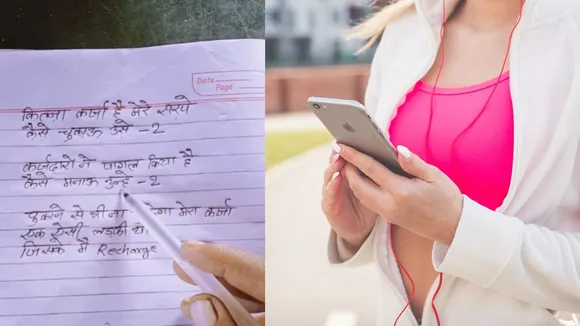 Date
Page
कितना कर्जा है मेरे सरपे
कैसे चुकाऊ उसे -2
कर्जदारो ने पागल किया है
कैसे मनाऊ उन्हे -2
चुकाने से भी ना मेरा कर्जा
एक ऐसी लडकी थी
जिसके मै Recharge